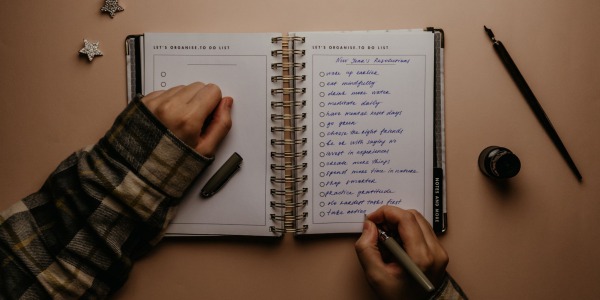 LET'S ORGANISE. TO DO LIST
LET'S ORGANISE. TO DO LIST
New Year's Resolutions
wake up earlier
eat mindfully
drink more water
meditate daily
have meatless days
go green
choose the right friends
be ok with saying no
invest in experiences
create more things
spend more time in nature
shop smarter
practice gratitude
do hardest tasks first
take
NOTES AND MORE